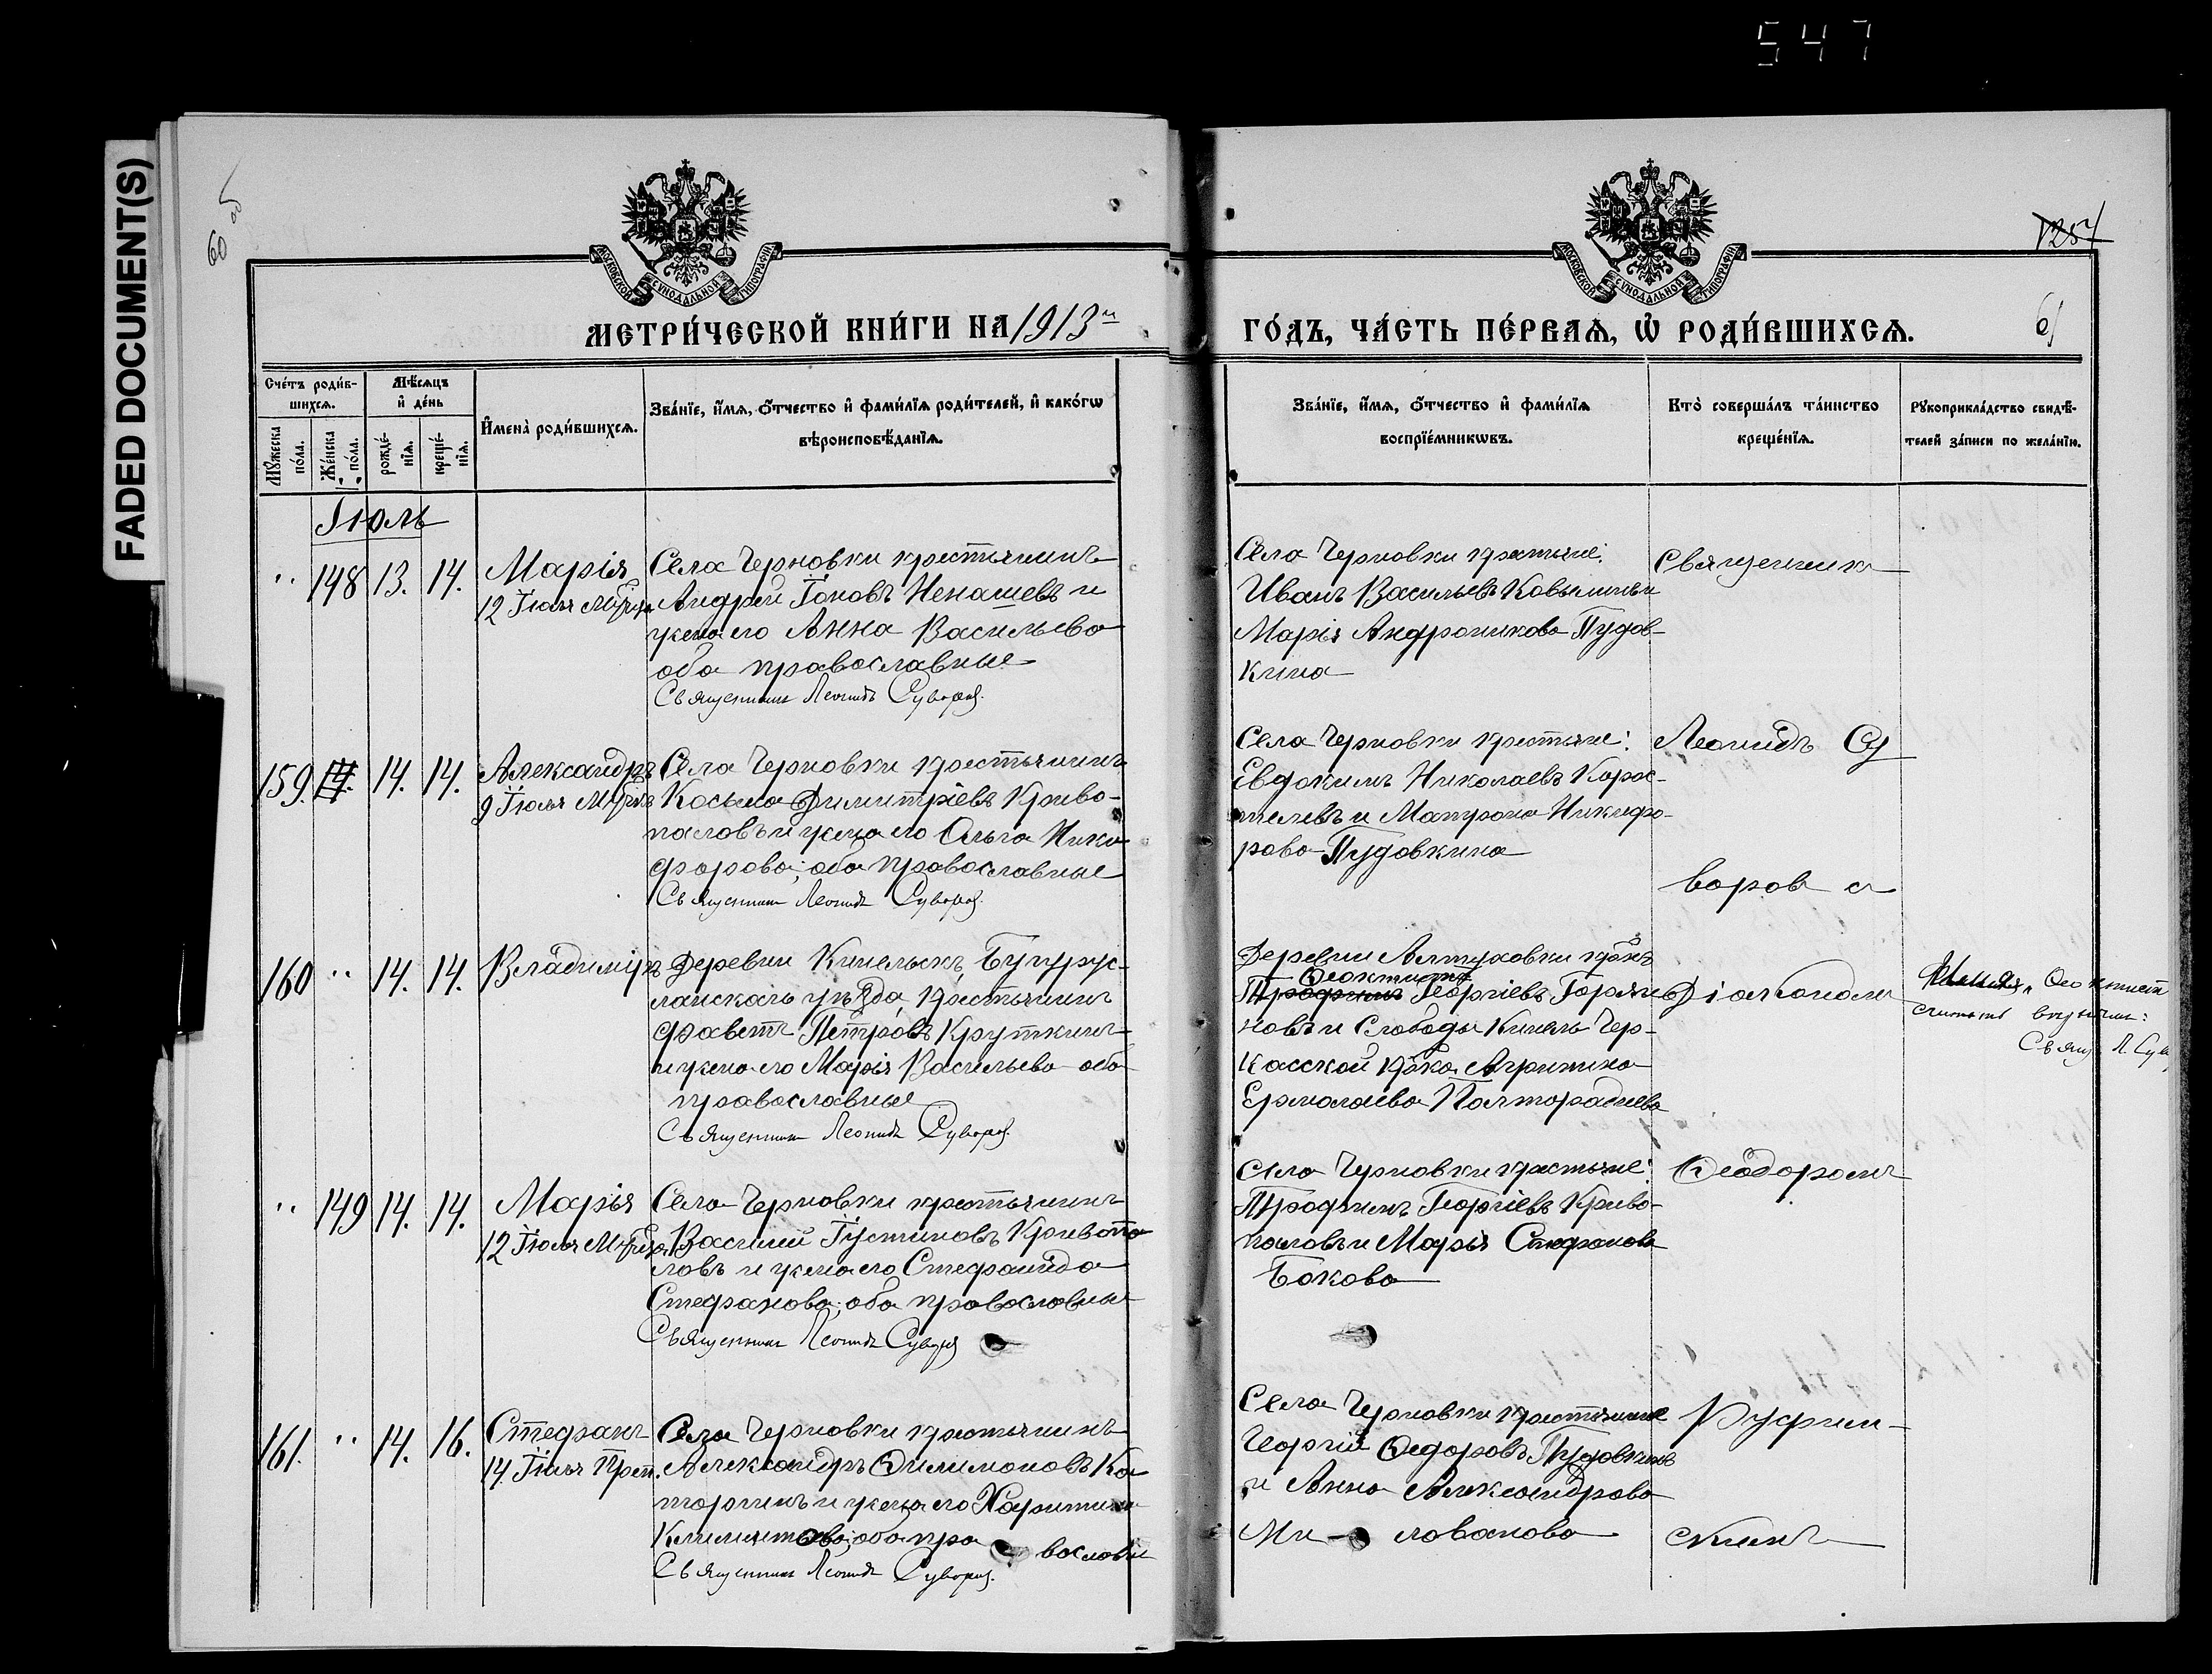 547
FADED DOCUMENT(S)
60 об
1257
61
МОСКОВСКОЙ СУНОДАЛЬНОЙ ТИПОГРАФІИ
МОСКОВСКОЙ СУНОДАЛЬНОЙ ТИПОГРАФІИ
МЕТРИ́ЧЕСКОЙ КНИ́ГИ НА 1913й
ГО́ДЪ, ЧА́СТЬ ПЕ́РВАѦ, Ѿ РОДИ́ВШИХСѦ.
Сче́тъ роди́в-
шихсѧ.
Мꙋ́жеска по́ла.
Же́нска по́ла.
Мѣ́сѧцъ
и҆ де́нь
рожде́-
нїѧ.
креще́-
нїѧ.
И҆мена̀ роди́вшихсѧ.
Зва́нїе, и҆́мѧ, ѻ҆́тчество и҆ фами́лїѧ роди́телей, и҆ како́гѡ
вѣроисповѣ́данїѧ.
Зва́нїе, и҆́мѧ, ѻ҆́тчество и҆ фами́лїѧ
воспрїе́мникѡвъ.
Кто̀ соверша́лъ та́инство
креще́нїѧ.
Рꙋкоприкла́дство свидѣ́-
телей за́писи по жела́нїю.
Іюль
" 148 13. 14. Марія
12 Іюля
Села Черновки крестьянинъ
Андрей Іоновъ Ненашевъ и
жена его Анна Васильева
оба православные
Священникъ Леонидъ Суворовъ.
Села Черновки крестьяне:
Иванъ Васильевъ Ковылинъ и
Марія Андроникова Пудов-
кина
Священника
159. 14. 14. Александръ
9 Іюля
Села Черновки крестьянинъ
Косьма Димитріевъ Криво-
пасловъ и жена его Ольга Ники-
форова; оба православные
Священникъ Леонидъ Суворовъ.
Села Черновки крестьяне:
Евдокимъ Николаевъ Корос-
телевъ и Матрона Никифо-
рова Пудовкина
Леонидъ Су
ворова
160 " 14. 14. Владиміръ
Деревни Кинельскъ, Бугурус-
ланскаго уѣзда, крестьянинъ
Фавстъ Петровъ Круткинъ
и жена его Марія Васильева оба
православные
Священникъ Леонидъ Суворовъ.
Деревни Алтуховки кр-нъ
Феоктистъ
Трофимъ Георгіевъ Горяи-
новъ и Слободы Кинель Чер-
касской кр-ка Агрипина
Ермолаева Полторадиева
Діакономъ
Свящ. Л. Сув
" 149 14. 14. Марія
12 Іюля
Села Черновки крестьянинъ
Василий Іустиновъ Кривопа
ловъ и жена его Стефанида
Стефанова; оба православные
Священникъ Леонидъ Суворовъ
Села Черновки крестьяне:
Трофимъ Георгіевъ Криво-
пасловъ и Марія Стефанова
Бокова
Ѳеодоромъ
161. " 14. 16. Стефанъ
14 Іюля Преп.
Села Черновки крестьянинъ
Александръ Филимоновъ Ка
торгинъ и жена его Харитина
Климентова; оба пра вославн
Священникъ Леонидъ Суворовъ.
Села Черновки крестьяне
Георгій Ѳедоровъ Пудовкинъ
и Анна Александрова
Ми ловонова
Руфим-
скимъ